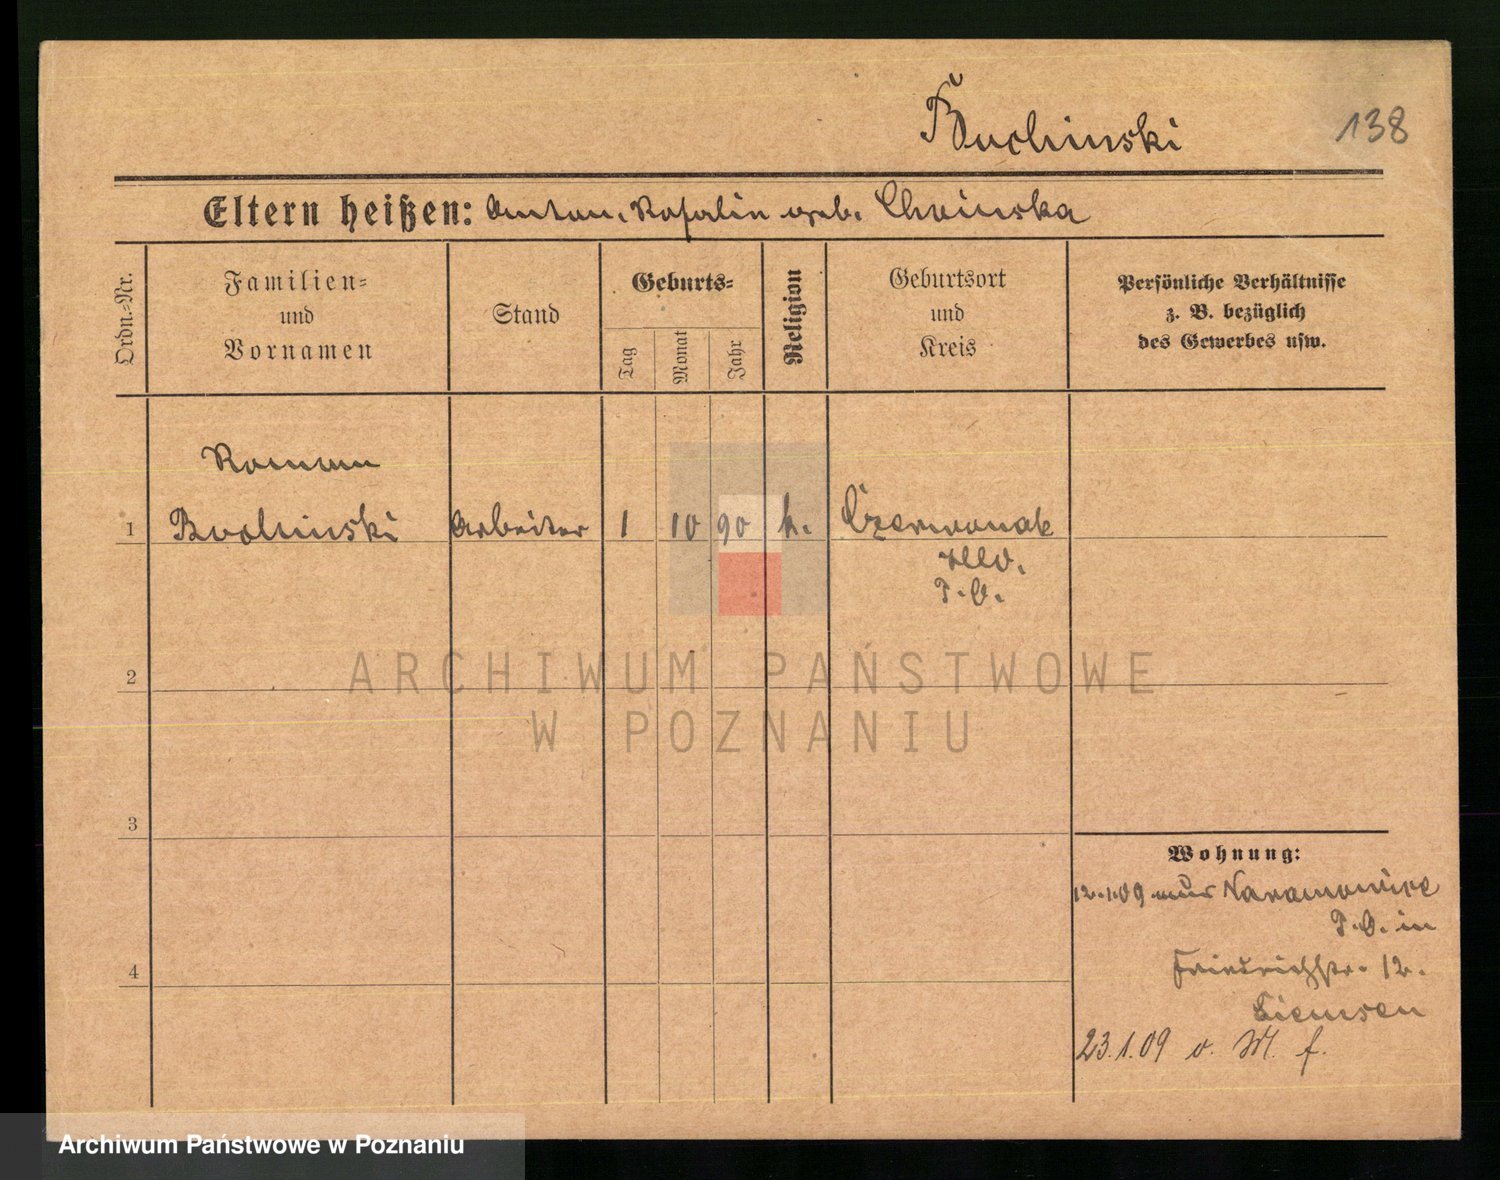 Buchinski
138
Eltern heißen: Anton. Rosalin geb. Chvinska
Ordn.-Nr.
Familien-
und
Vornamen
Stand
Geburts-
Tag
Monat
Jahr
Religion
Geburtsort
und
Kreis
Persönliche Verhältnisse
z. B. bezüglich
des Gewerbes usw.
Roman
1 Buchinski Arbeiter 1 10 90 k. Czerwonak
P. O.
2
3
4
ARCHIWUM PAŃSTWOWE
W POZNANIU
Wohnung:
12.1.09 aus
P. O. in
Friedrichstr. 12.
Siemsen
23.1.09 v. M. f.
Archiwum Państwowe w Poznaniu